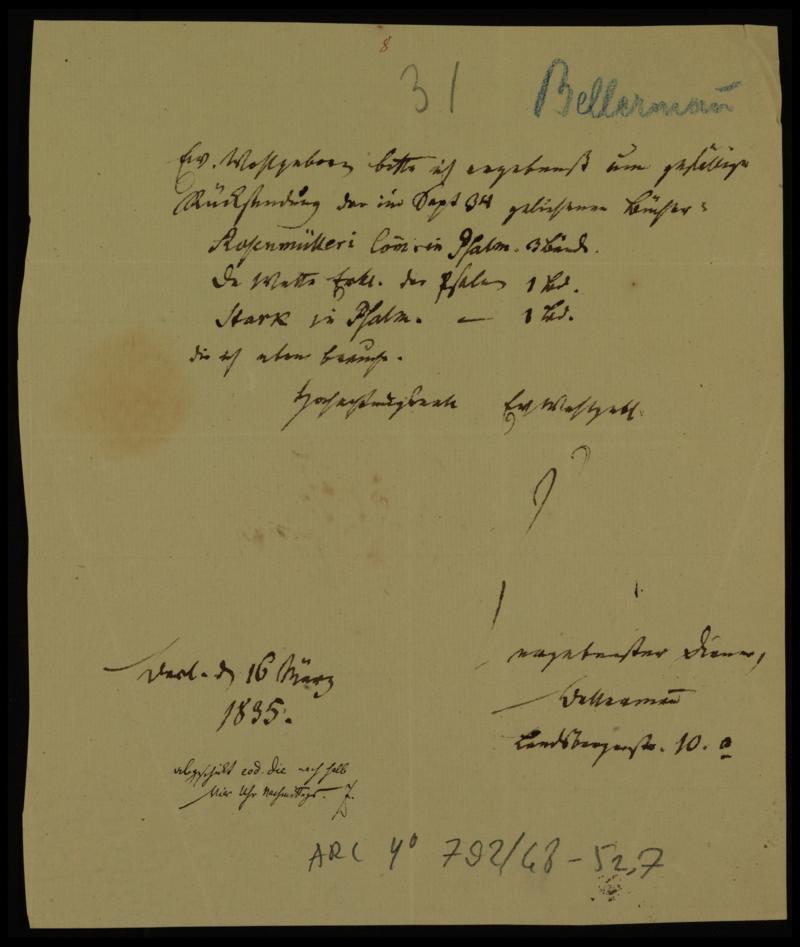 8
31 Bellermañ
Ew. Wohlgeboren bitte ich ergebenst um gefällige
Rücksendung der im Sept 34 geliehenen Bücher:
Rosenmülleri Com̄. in Psalm. 3 Bände.
De Wette Erkl. der Psalmen 1 Bd.
Stark in Psalm. — 1 Bd.
die ich eben brauche.
Hochachtungsvoll Ew Wohlgeb.
ergebenster Diener,
Bellermañ
Landsbergerstr. 10. a
Berl. d 16 März
1835.
abgeschickt eod. die nach halb
vier Uhr Nachmittags. Z.
ARC 4° 792/68-52,7